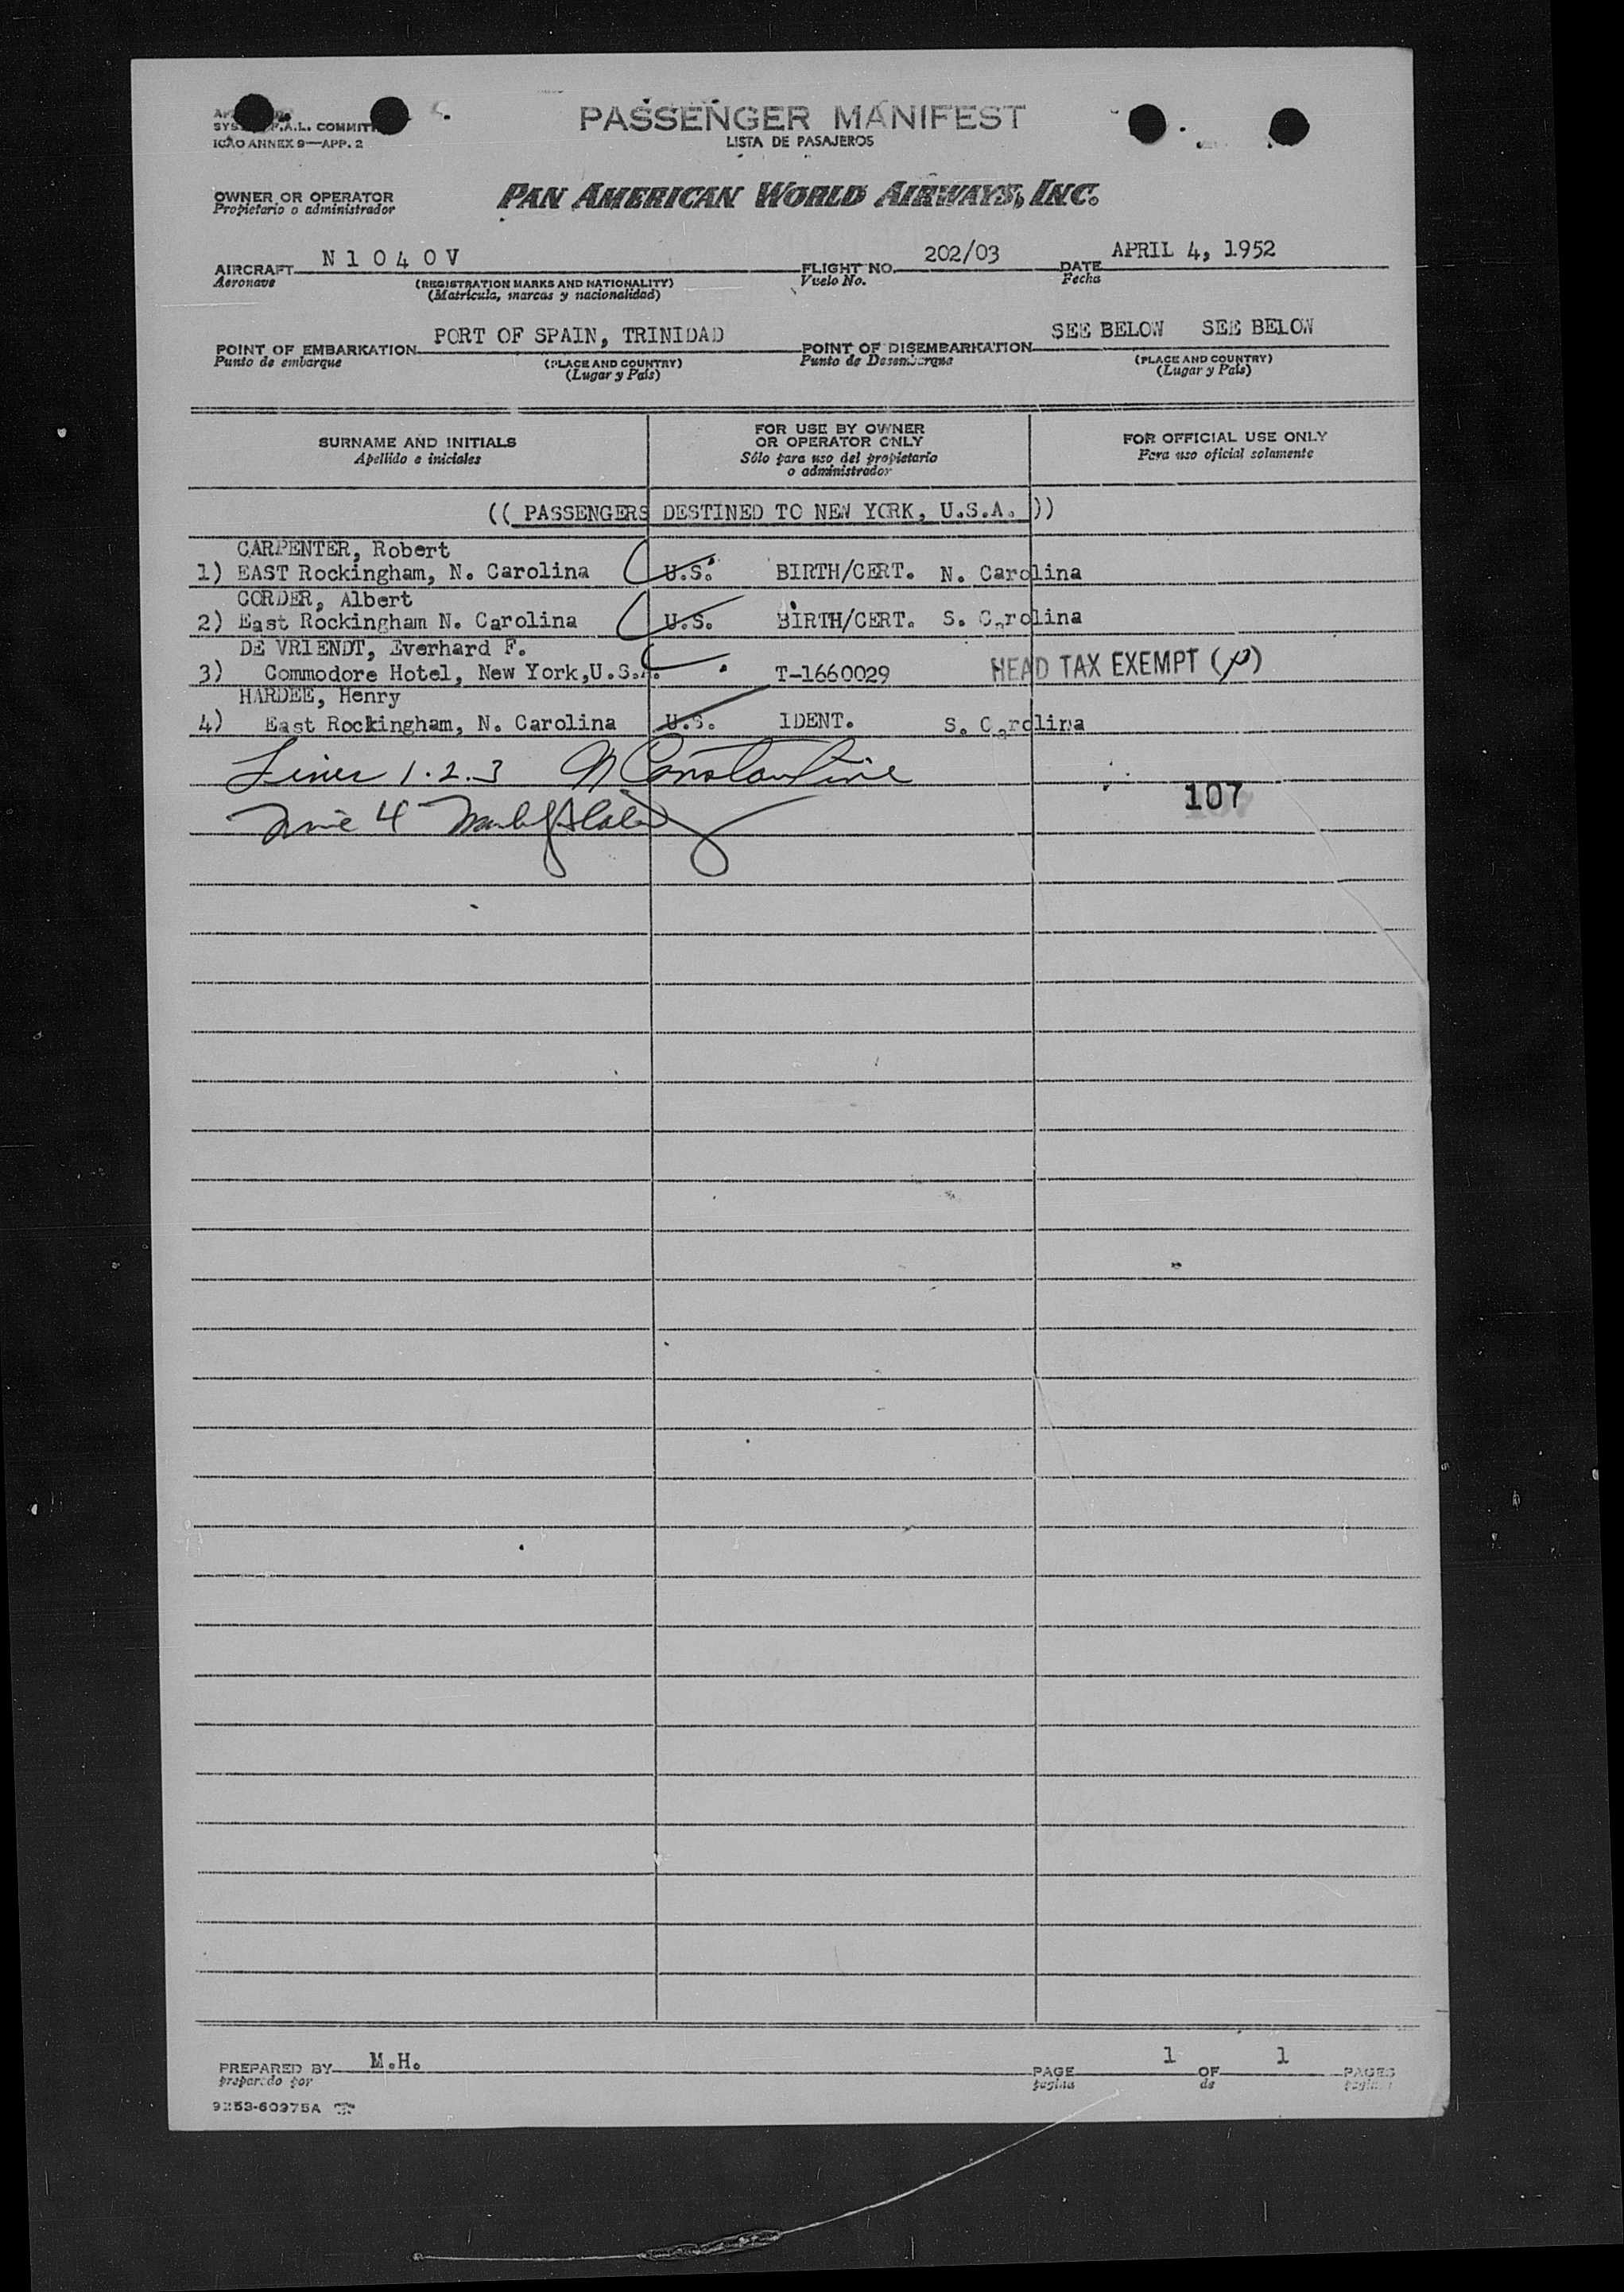 PASSENGER MANIFEST
LISTA DE PASAJEROS
P.A.L. COMMIT
ICAO ANNEX 9—APP. 2
OWNER OR OPERATOR
Propietario o administrador
PAN AMERICAN WORLD AIRWAYS, INC.
AIRCRAFT N 1 0 4 0 V FLIGHT NO. 202/03 DATE APRIL 4, 1952
Aeronave (REGISTRATION MARKS AND NATIONALITY) Vuelo No. Fecha
(Matrícula, marcas y nacionalidad)
POINT OF EMBARKATION PORT OF SPAIN, TRINIDAD POINT OF DISEMBARKATION SEE BELOW SEE BELOW
Punto de embarque (PLACE AND COUNTRY) Punto de Desembarque (PLACE AND COUNTRY)
(Lugar y País) (Lugar y País)
SURNAME AND INITIALS
Apellido e iniciales
FOR USE BY OWNER
OR OPERATOR ONLY
Sólo para uso del propietario
o administrador
FOR OFFICIAL USE ONLY
Para uso oficial solamente
(( PASSENGERS DESTINED TO NEW YORK, U.S.A. ))
CARPENTER, Robert
1) EAST Rockingham, N. Carolina U.S. BIRTH/CERT. N. Carolina
CORDER, Albert
2) East Rockingham N. Carolina U.S. BIRTH/CERT. S. Carolina
DE VRIENDT, Everhard F.
3) Commodore Hotel, New York,U.S.A. T-1660029 HEAD TAX EXEMPT (p)
HARDEE, Henry
4) East Rockingham, N. Carolina U.S. IDENT. S. Carolina
Lines 1.2.3 N Constantine
107
Line 4
PREPARED BY M.H. PAGE 1 OF 1 PAGES
preparado por pagina de paginas
9253-60975A